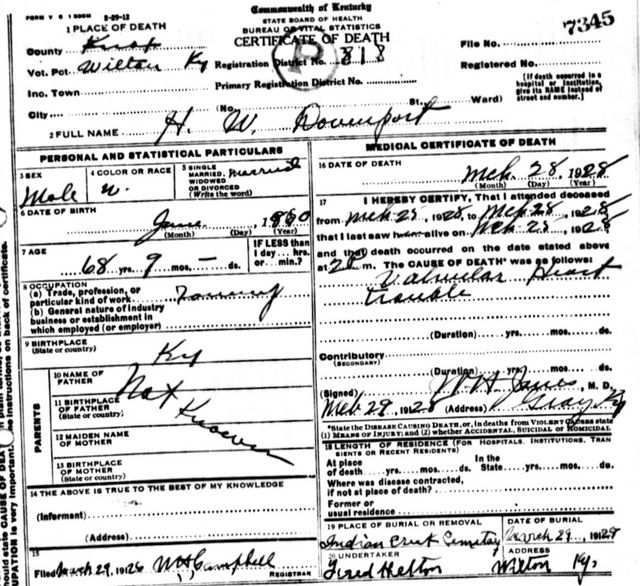 FORM V S 1 500M 2-29-12
Commonwealth of Kentucky
STATE BOARD OF HEALTH
BUREAU OF VITAL STATISTICS
CERTIFICATE OF DEATH
1 PLACE OF DEATH
County Knox
Vot. Pct. Wilton Ky Registration District No. 818
Inc. Town Primary Registration District No.
City (No. St., Ward)
File No. 7345
Registered No.
[If death occurred in a
hospital or institution,
give its NAME instead of
street and number.]
2 FULL NAME H. W. Davenport
PERSONAL AND STATISTICAL PARTICULARS
3 SEX Male
4 COLOR OR RACE W.
5 SINGLE
MARRIED, Married
WIDOWED
OR DIVORCED
(Write the word)
6 DATE OF BIRTH
June, 1860
(Month) (Day) (Year)
7 AGE
68 yrs. 9 mos. — ds.
IF LESS than
1 day...hrs.
or...min.?
8 OCCUPATION
(a) Trade, profession, or
particular kind of work
(b) General nature of industry
business or establishment in
which employed (or employer)
9 BIRTHPLACE
(State or country) Ky
PARENTS
10 NAME OF
FATHER Not
11 BIRTHPLACE
OF FATHER
(State or country) Known
12 MAIDEN NAME
OF MOTHER
13 BIRTHPLACE
OF MOTHER
(State or country)
14 THE ABOVE IS TRUE TO THE BEST OF MY KNOWLEDGE
(Informant)
(Address)
15
Filed March 29, 192 WH Campbell
REGISTRAR
MEDICAL CERTIFICATE OF DEATH
16 DATE OF DEATH
Mch. 28, 1928
(Month) (Day) (Year)
17 I HEREBY CERTIFY, That I attended deceased
from Mch 25, 1928, to Mch 28, 1928
that I last saw alive on Mch 25, 1928
and that death occurred on the date stated above
at m. The CAUSE OF DEATH* was as follows:
Valvular Heart
trouble
(Duration) yrs. mos. ds.
Contributory
(SECONDARY)
(Duration) yrs. mos. ds.
(Signed) W H Jones, M. D.
Mch 29, 1928 (Address) Gray Ky
*State the DISEASE CAUSING DEATH, or, in deaths from VIOLENT CAUSES state
(1) MEANS OF INJURY; and (2) whether ACCIDENTAL, SUICIDAL OR HOMICIDAL
18 LENGTH OF RESIDENCE (FOR HOSPITALS, INSTITUTIONS, TRAN
SIENTS OR RECENT RESIDENTS)
At place In the
of death yrs. mos. ds. State yrs. mos. ds.
Where was disease contracted,
if not at place of death?
Former or
usual residence
19 PLACE OF BURIAL OR REMOVAL DATE OF BURIAL
Indian Creek Cemetery March 29, 192
20 UNDERTAKER ADDRESS
Fred Helton Wilton Ky.